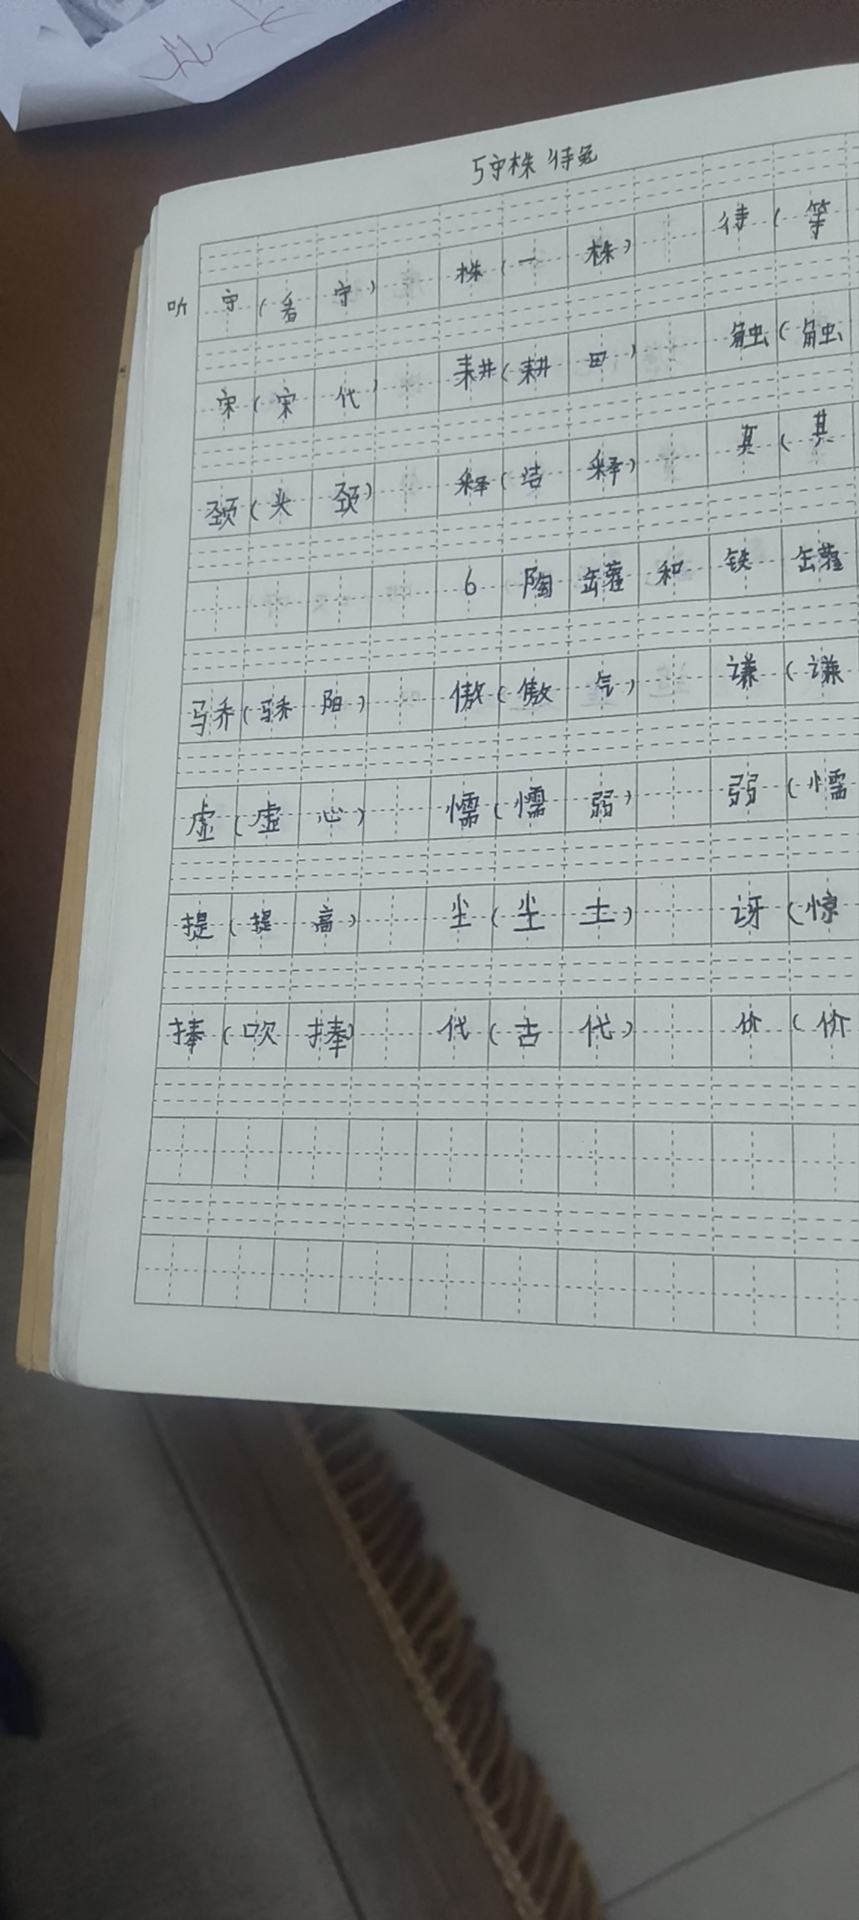 5守株待兔
听 守(看守) 株(一株) 待(等
宋(宋代) 耕(耕田) 触(触
颈(头颈) 释(洁释) 其(其
6 陶罐和铁罐
骄(骄阳) 傲(傲气) 谦(谦
虚(虚心) 懦(懦弱) 弱(懦
提(提高) 尘(尘土) 讶(惊
捧(吹捧) 代(古代) 价(价